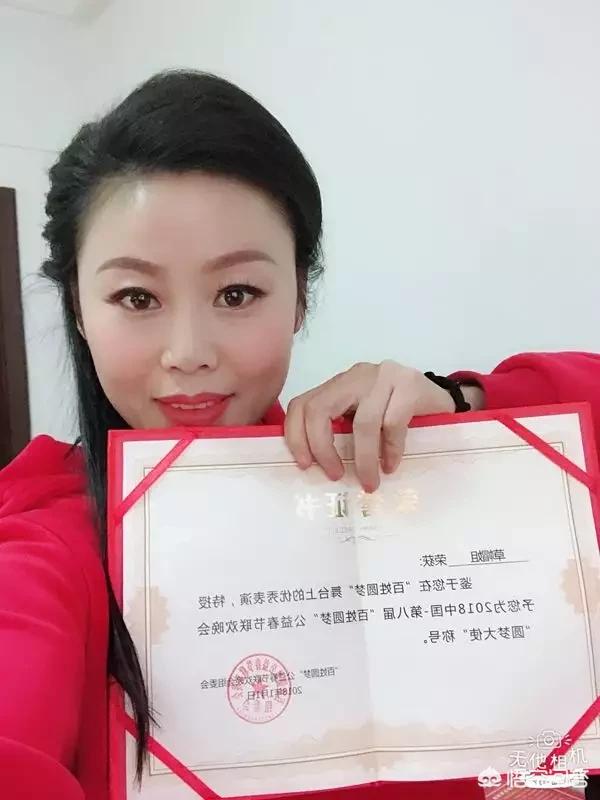 荣誉证书
草帽姐 荣获:
鉴于您在“百姓圆梦”舞台上的优秀表演,特授
予您为2018中国-第八届“百姓圆梦”公益春节联欢晚会
“圆梦大使”称号。
“百姓圆梦”公益春节联欢晚会组委会
2018年1月11日
无他相机
悟空问答